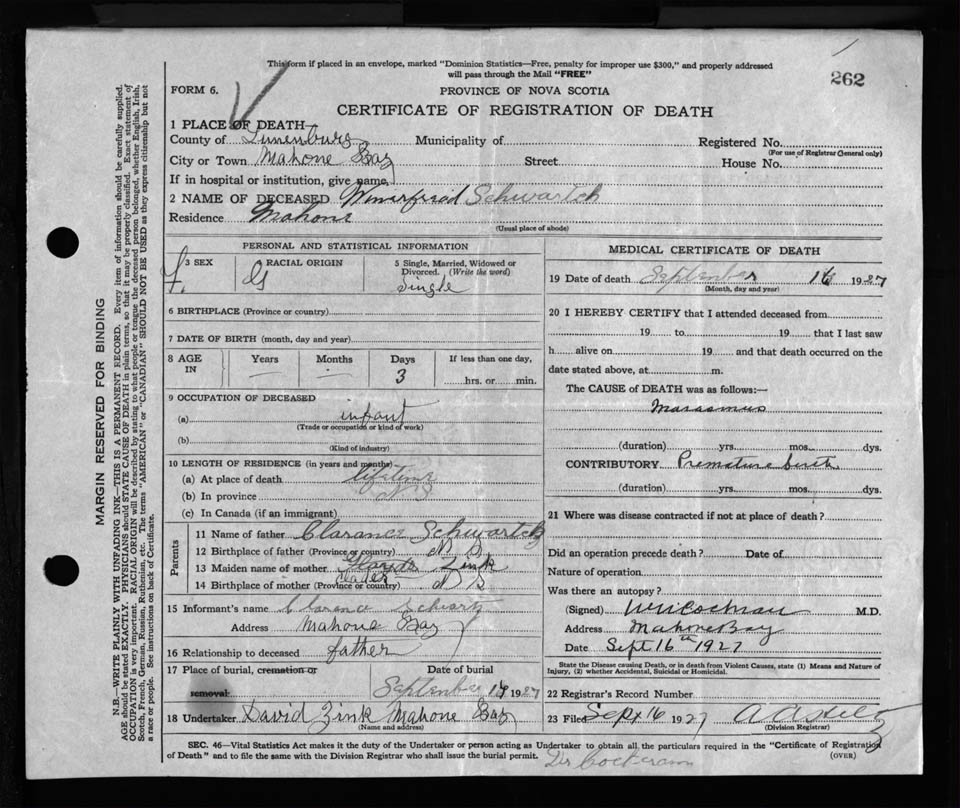 This form if placed in an envelope, marked "Dominion Statistics—Free, penalty for improper use $300," and properly addressed
will pass through the Mail "FREE"
262
FORM 6.
PROVINCE OF NOVA SCOTIA
CERTIFICATE OF REGISTRATION OF DEATH
1 PLACE OF DEATH—
County of Lunenburg Municipality of Registered No.
(For use of Registrar General only)
City or Town Mahone Bay Street House No.
If in hospital or institution, give name
2 NAME OF DECEASED Winnifried Schwartch
Residence Mahone
(Usual place of abode)
PERSONAL AND STATISTICAL INFORMATION
3 SEX F. 4 RACIAL ORIGIN G 5 Single, Married, Widowed or Divorced. (Write the word) Single
6 BIRTHPLACE (Province or country)
7 DATE OF BIRTH (month, day and year)
8 AGE IN Years — Months — Days 3 If less than one day, hrs. or min.
9 OCCUPATION OF DECEASED
(a) infant
(Trade or occupation or kind of work)
(b)
(Kind of industry)
10 LENGTH OF RESIDENCE (in years and months)
(a) At place of death lifetime
(b) In province N S
(c) In Canada (if an immigrant)
Parents
11 Name of father Clarance Schwartch
12 Birthplace of father (Province or country) N S
13 Maiden name of mother Zink
14 Birthplace of mother (Province or country) N S
15 Informant's name Clarance Schwartz
Address Mahone Bay
16 Relationship to deceased father
17 Place of burial, cremation or removal Date of burial
September 17 1927
18 Undertaker David Zink Mahone Bay
(Name and address)
MEDICAL CERTIFICATE OF DEATH
19 Date of death September 16 1927
(Month, day and year)
20 I HEREBY CERTIFY that I attended deceased from
19 to 19 that I last saw
h alive on 19 and that death occurred on the
date stated above, at m.
The CAUSE of DEATH was as follows:—
Marasmus
(duration) yrs. mos. dys.
CONTRIBUTORY Premature birth
(duration) yrs. mos. dys.
21 Where was disease contracted if not at place of death?
Did an operation precede death? Date of
Nature of operation
Was there an autopsy?
(Signed) Cochran M.D.
Address Mahone Bay
Date Sept 16th 1927
State the Disease causing Death, or in death from Violent Causes, state (1) Means and Nature of
Injury, (2) whether Accidental, Suicidal or Homicidal.
22 Registrar's Record Number
23 Filed Sept 16 1927
(Division Registrar)
SEC. 46—Vital Statistics Act makes it the duty of the Undertaker or person acting as Undertaker to obtain all the particulars required in the "Certificate of Registration
of Death" and to file the same with the Division Registrar who shall issue the burial permit.
(OVER)
Dr Cockeram
MARGIN RESERVED FOR BINDING
N.B.—WRITE PLAINLY WITH UNFADING INK—THIS IS A PERMANENT RECORD. Every item of information should be carefully supplied.
AGE should be stated EXACTLY. PHYSICIANS should STATE CAUSE OF DEATH in plain terms, so that it may be properly classified. Exact statement of
OCCUPATION is very important. RACIAL ORIGIN will be described by stating to what people or tongue the deceased person belonged, whether English, Irish,
Scotch, French, German, Russian, Ruthenian, etc. The terms "AMERICAN" or "CANADIAN" SHOULD NOT BE USED as they express citizenship but not
a race or people. See instructions on back of Certificate.